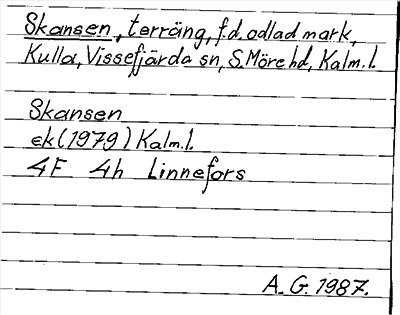 Skansen, terräng, f.d. odlad mark,
Kulla, Vissefjärda sn, S. Möre hd, Kalm. l.
Skansen
ek (1979) Kalm. l.
4F 4h Linnefors
A. G. 1987.